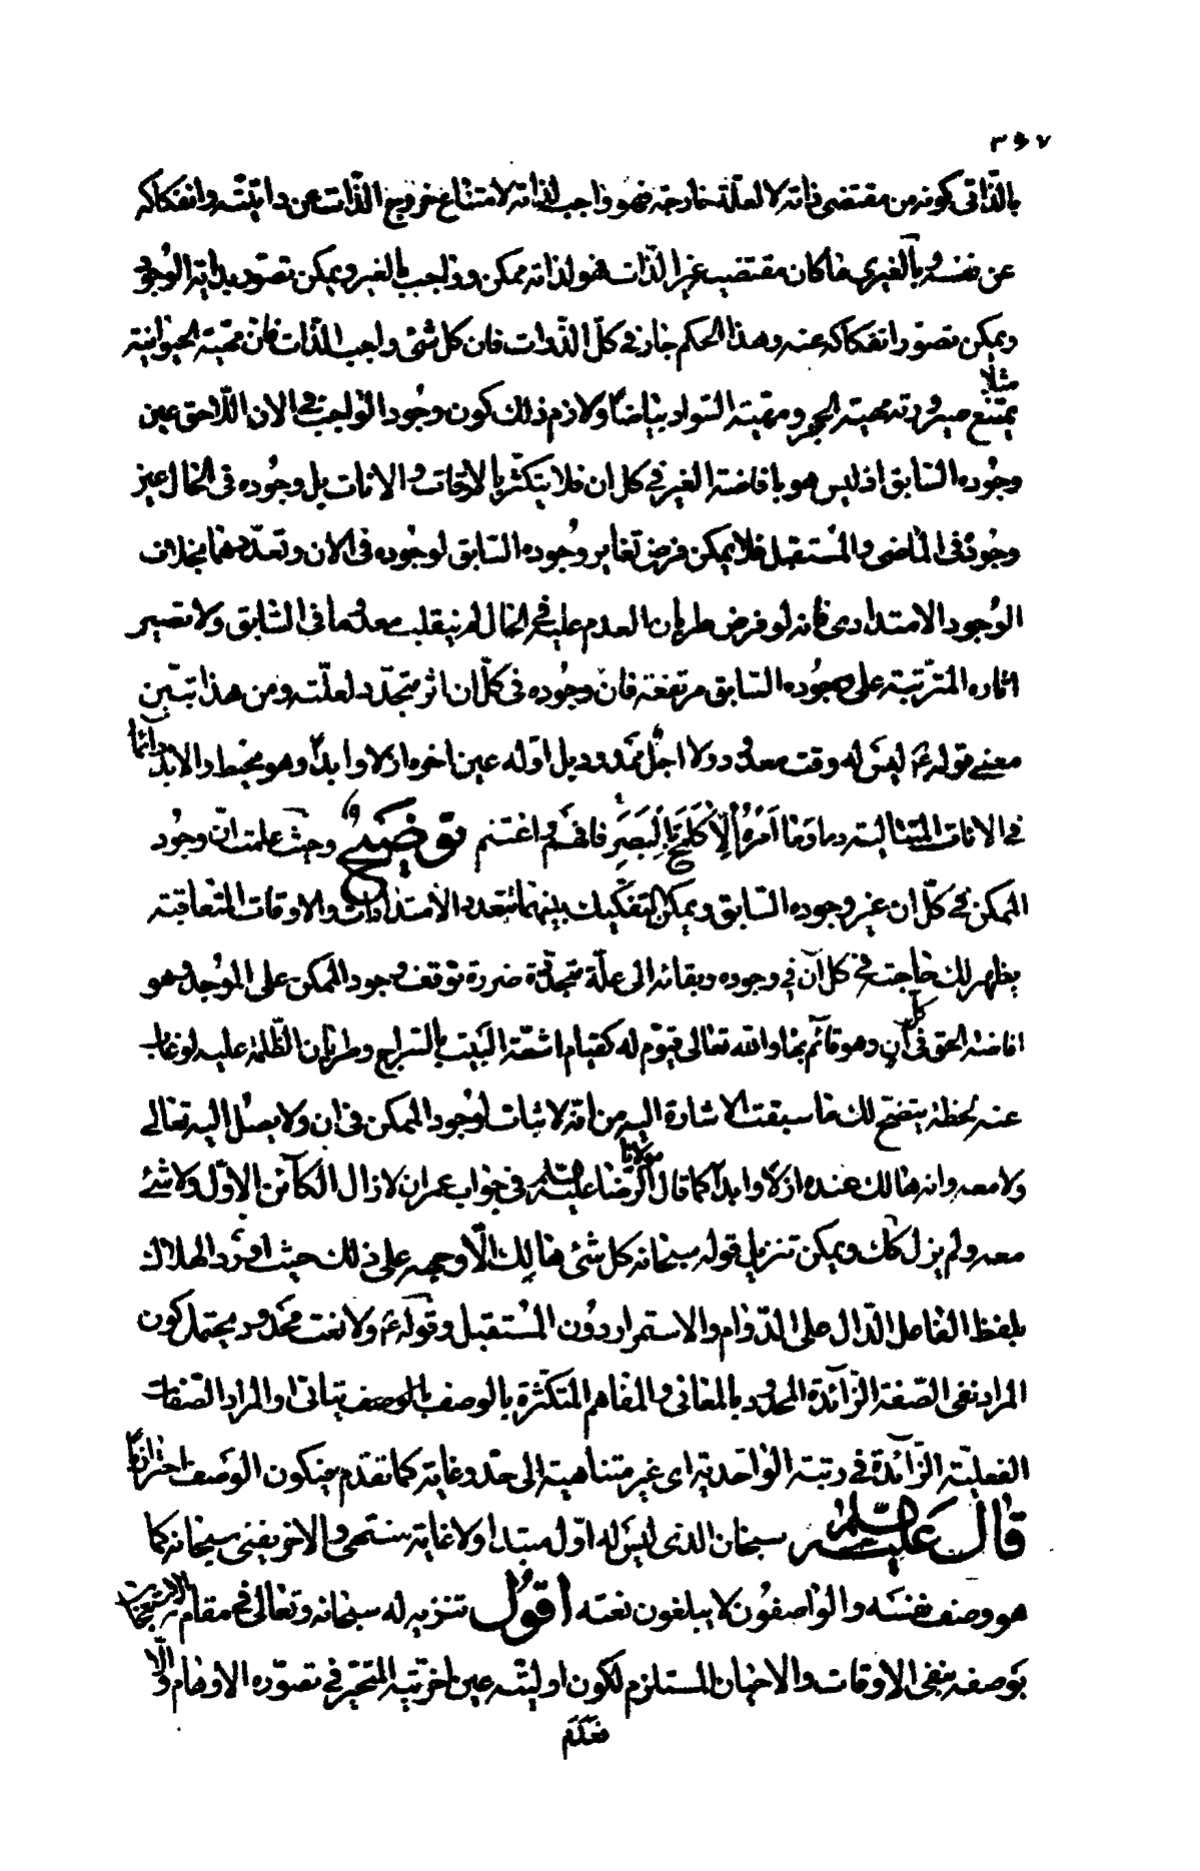 ٣٥٧
بالذّاتى كونه من مقتضى ذاته لا لعلّة خارجة فهو واجب لذاته لامتناع خروج الذّات عن ذاتيّته وانفكاكه
عن نفسه وبالغيرى ما كان مقتضيه غير الذّات فهو لذاته ممكن وواجب بالغير ويمكن تصوّر بداية الوُجود
ويمكن تصوّر انفكاكه عنه وهذا الحكم جار فى كلّ الذّوات فان كل شئ واجب الذّات فانّ مهيّة الحيوانيّة
مثلا
يمتنع صيرورته مهية الحجر ومهيّة السّواد بياضا ولازم ذلك كون وجُود الواجب فى الان اللّاحق عين
وجُوده السّابق اذ ليس هو بافاضة الغير فى كل ان فلا يتكثّر بالاوقات والانات بل وجُوده فى الحال عين
وجُودهٔ فى الماضى والمُستقبل فلا يمكن فرض تغاير وجُوده السّابق لوجُوده فى الان وتعدّدهما بخلاف
الوُجود الامتدادى فانه لو فرض طريان العدم عليه فى الحال لم ينقلب معدوما فى السّابق ولا تصير
اثاره المترتّبة على وجُوده السّابق مرتفعة فانّ وجُوده فى كلّ ان اثر متجدّد لعلّته ومن هذا تبيّن
معنى قوله ع ليسَ له وقت معدُود ولا اجلٌ ممدُود بل اوّله عين اخره ازلا وابدًا وهو محيط والابد دائما
فى الانات المتتالية وما امرُهُ اِلّا كَلَمْحٍ بِالْبَصَرِ فافهم واغتنم توضيح وحيث علمت انّ وجُود
الممكن فى كلّ ان غير وجوده السّابق ويمكن التفكيك بينهما بتعدد الامتدادات والاوقات المتعاقبة
يظهر لك حاجته فى كل آن فى وجوده وبقائه الى علّة متجدّدة ضرورة توقف وجود الممكن على الموُجد وهو
افاضة الحق فى كل آنٍ وهو قائم بها والله تعالى قيّوم له كقيام اشعّة البَيت بالسّراج وطريان الظّلمة عليه لو غاب
عنه لحظة يتضح لك ما سبقت الاشارة اليه من انّه لا ثبات لوجُود الممكن فى ان ولا يصلُ اليه تعالى
ولا معه وانه هالك عنده ازلا وابدًا كما قال مولانا الرّضا عليه السّلم فى جواب عمران لا زال الكآئن الاوّل ولا شئ
معه ولم يزل كك ويمكن تنزيل قوله سبحانه كل شئ هالِك الّا وجهه على ذلك حيث اورد الهلاك
بلفظ الفاعل الدّال على الدّوام والاستمرار دوُن المُستقبل وقوله ع ولا نعت محدُود يحتمل كون
المراد نفى الصّفة الزّائدة المحدُود بالمعانى والمفاهم المتكثّرة بالوصف بالوصف او المراد الصّفات
الفعليّة الزّائدة فى رتبة الواحديّة اى غير متناهية الى حدّ وغاية كما تقدّم فيكون الوَصف احترازيًا
قال عليه السّلم سبحان الذى ليسَ له اوّل مبتدا ولا غاية منتهى والا اخر يفنى سبحانه كما
هو وصف نفسَه والواصفوُن لا يبلغون نعته اقوُل تنزيه له سبحانه وتعالى فى مقام
بَوصفه بنفى الاوقات والاحيان المستلزم لكون اوليّته عين اخريّته المتحيّر فى تصوّره الاوهام والّا
فعَدَم